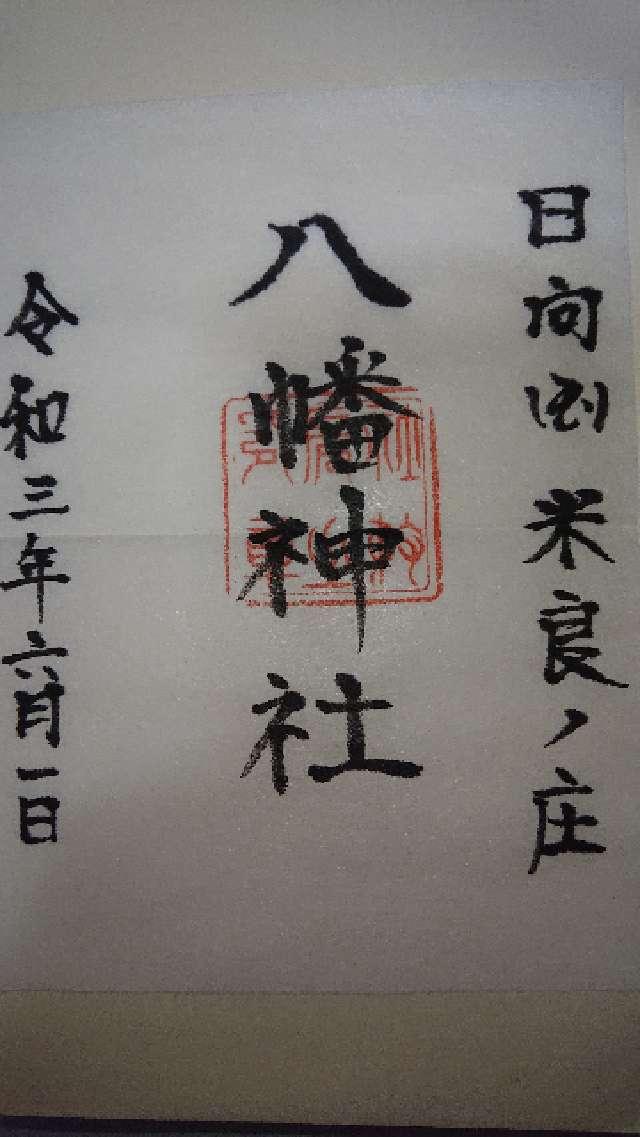 日向国 米良ノ庄
八幡神社
令和三年六月一日